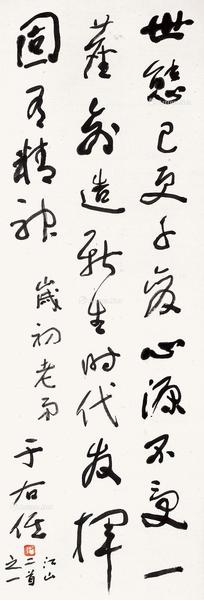 世態已更千變心源不受一
塵創造新生時代發揮
固有精神
歲初老弟
于右任
江山
二首
之一